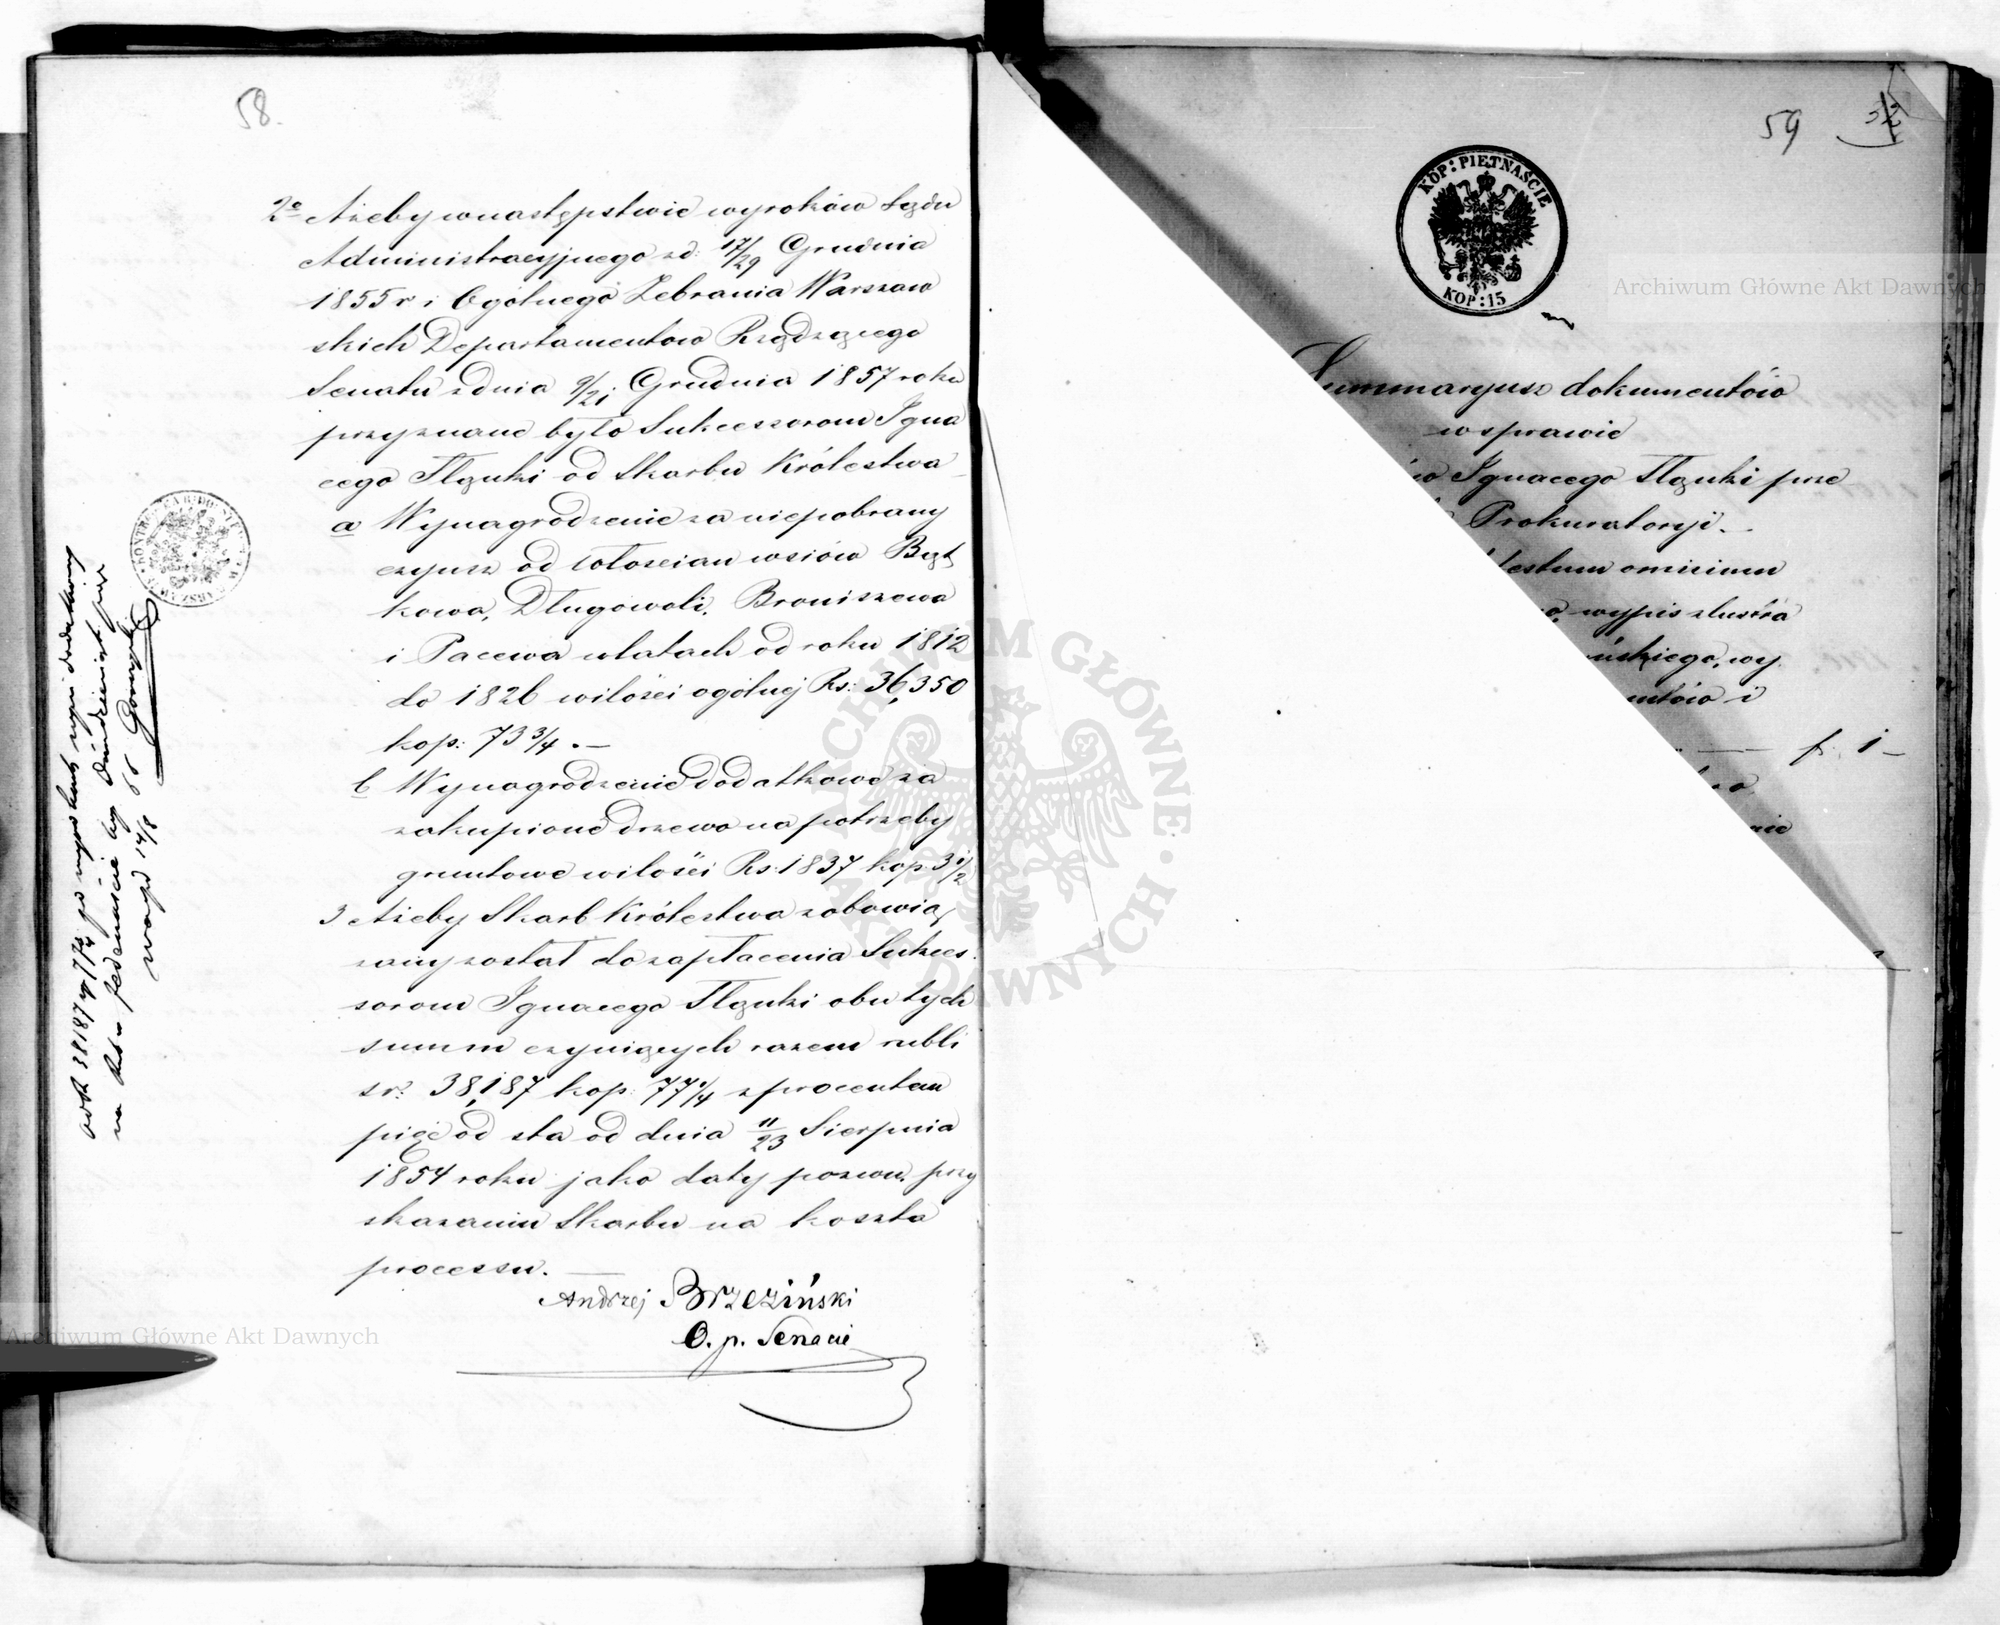 58.
2o Ażeby w następstwie wyroków Sądu
Administracyjnego z d. 17/29 Grudnia
1855 r i Ogólnego Zebrania Warszaw
skich Departamentów Rządzącego
Senatu z dnia 9/21 Grudnia 1857 roku
przyznane było Sukcessorom Igna
cego Tłąuki od Skarbu Królestwa
a Wynagrodzenie za niepobrany
czynsz od włościan wsiów Bąt
kowa, Długowoli, Broniszewa
i Pacewa w latach od roku 1812
do 1826 w ilości ogólnej Rs: 36,350
kop: 73 3/4 . —
b Wynagrodzenie dodatkowe za
zakupione drzewo na potrzeby
gruntowe w ilości Rs: 1837 kop. 3 1/2
3 Ażeby Skarb Królestwa zobowią
zany został do zapłacenia Sukces
sorom Ignacego Tłąuki obu tych
summ czyniących razem rubli
sr: 38,187 kop: 77 1/4 z procentem
pięć od sta od dnia 11/23 Sierpnia
1854 roku jako daty pozwu, przy
skazaniu Skarbu na koszta
processu. —
Andrzej Brzeziński
O. p. Senacie
59
KOP: PIĘTNAŚCIE
KOP: 15
Summaryusz dokumentów
w sprawie
Ignacego Tłąuki prze
Prokuratoryi. -
testum omissum
wypis z lustra
ńskiego, wy
f. 1 —
Archiwum Główne Akt Dawnych
Archiwum Główne Akt Dawnych
ARCHIWUM GŁÓWNE
AKT DAWNYCH